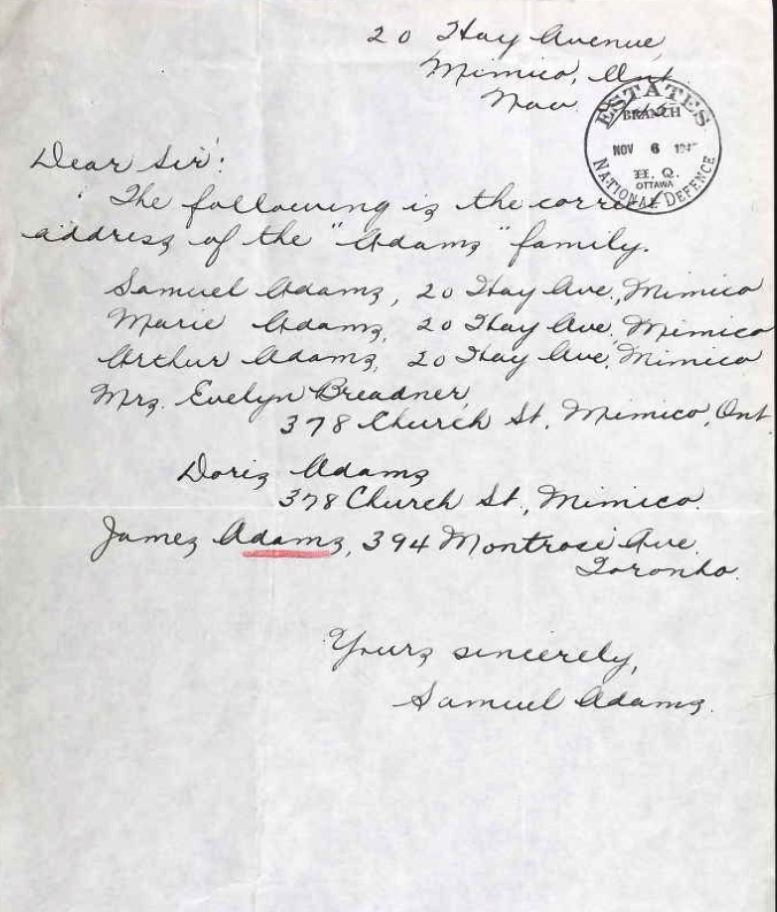 20 Hay Avenue,
Mimico, Ont.
Nov.
ESTATES
BRANCH
NOV 6
H. Q.
OTTAWA
NATIONAL DEFENCE
Dear Sir:
The following is the
address of the "Adams" family.
Samuel Adams, 20 Hay Ave., Mimico
Marie Adams, 20 Hay Ave. Mimico
Arthur Adams, 20 Hay Ave. Mimico
Mrs. Evelyn Breadner,
378 Church St. Mimico, Ont.
Doris Adams
378 Church St., Mimico.
James Adams, 394 Montrose Ave.
Toronto.
Yours sincerely,
Samuel Adams.